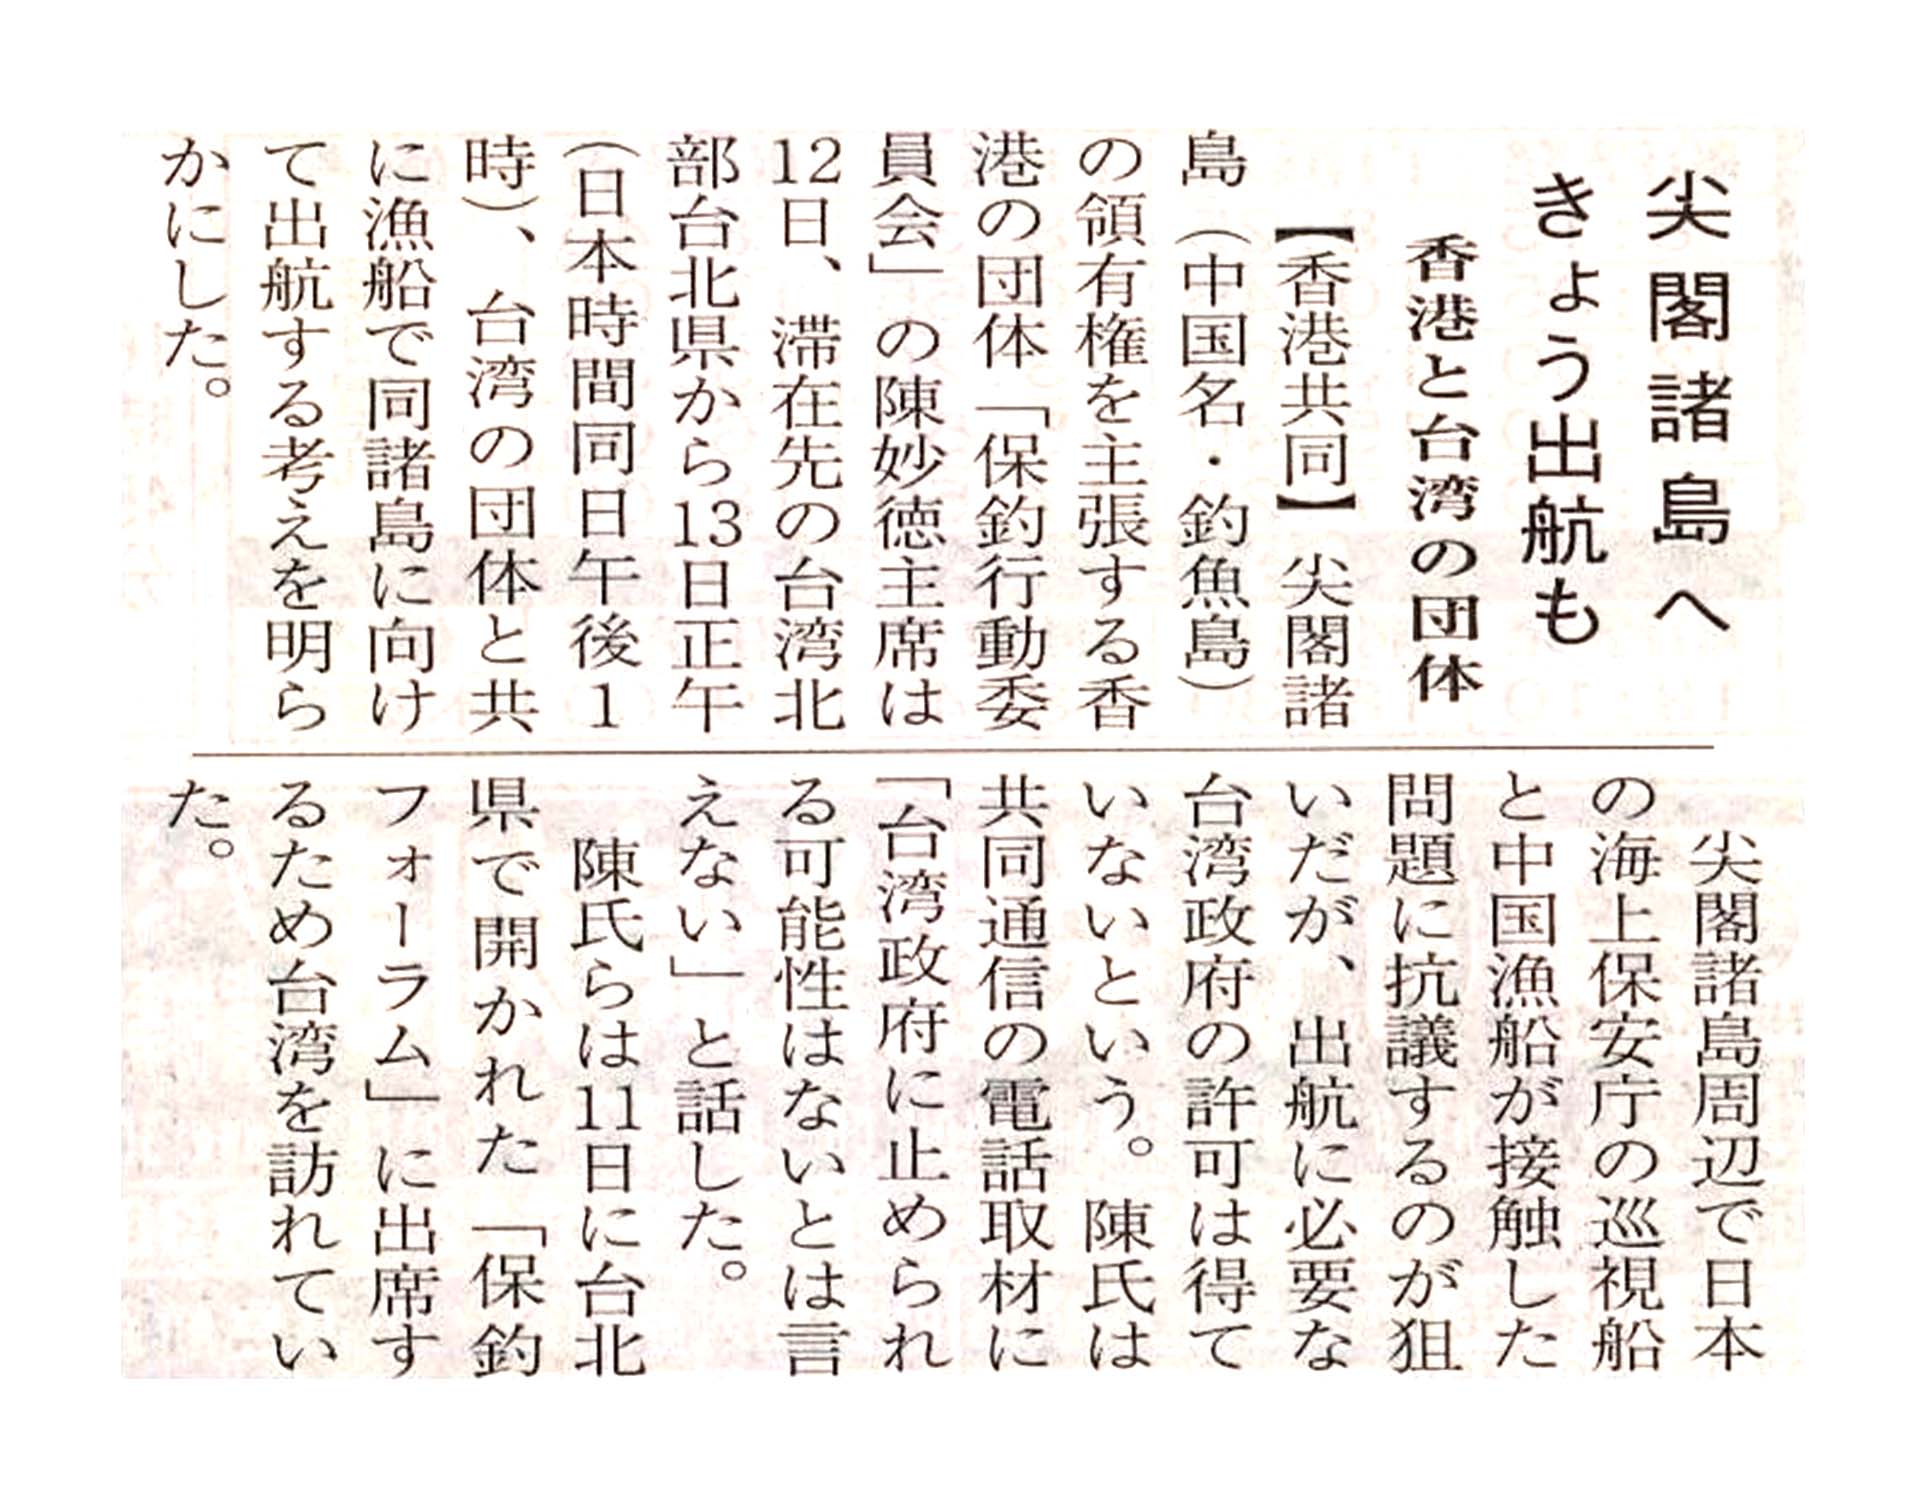 尖閣諸島へ
きょう出航も
香港と台湾の団体
【香港共同】尖閣諸
島（中国名・釣魚島）
の領有権を主張する香
港の団体「保釣行動委
員会」の陳妙徳主席は
12日、滞在先の台湾北
部台北県から13日正午
（日本時間同日午後1
時）、台湾の団体と共
に漁船で同諸島に向け
て出航する考えを明ら
かにした。
尖閣諸島周辺で日本
の海上保安庁の巡視船
と中国漁船が接触した
問題に抗議するのが狙
いだが、出航に必要な
台湾政府の許可は得て
いないという。陳氏は
共同通信の電話取材に
「台湾政府に止められ
る可能性はないとは言
えない」と話した。
陳氏らは11日に台北
県で開かれた「保釣
フォーラム」に出席す
るため台湾を訪れてい
た。